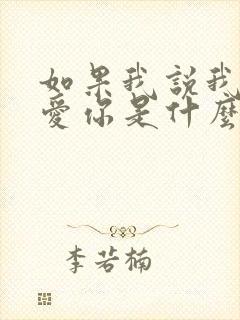 如果我說我
愛你是什麼
李若楠